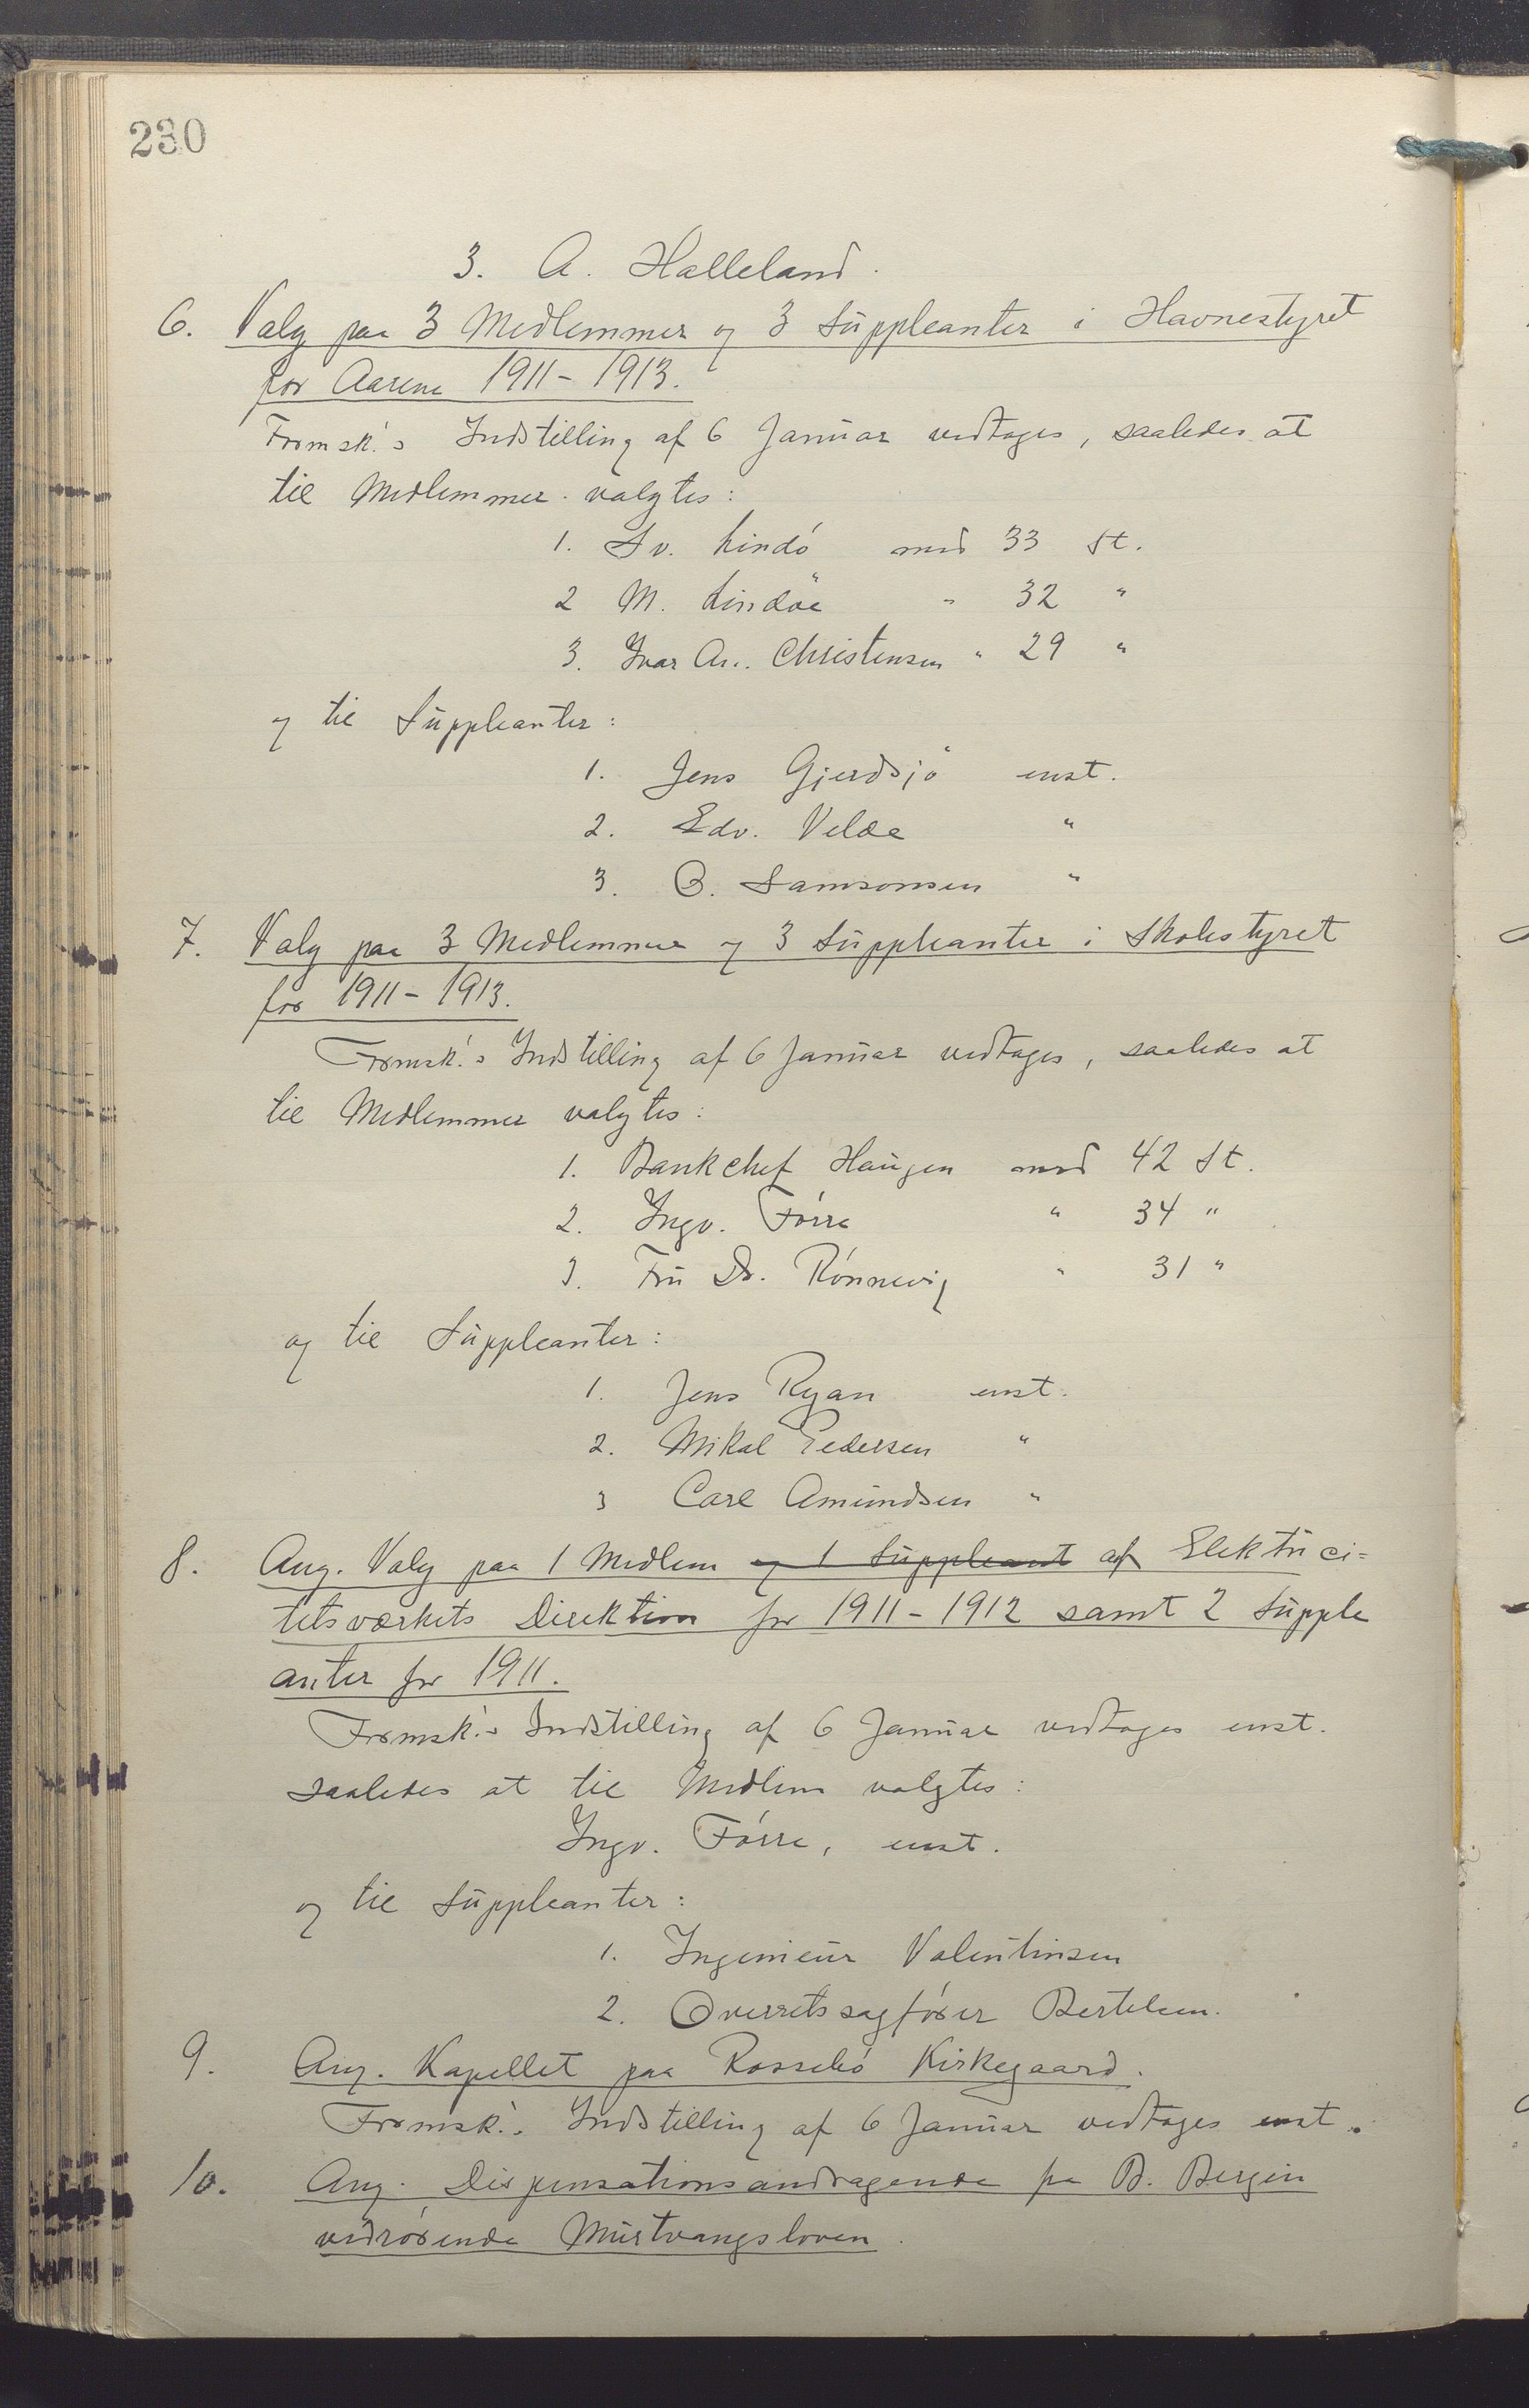 230
3. A. Halleland.
6. Valg paa 3 Medlemmer og 3 Suppleanter i Havnestyret
for Aarene 1911-1913.
Formsk.'s Indstilling af 6 Januar vedtages, saaledes at
til Medlemmer valgtes:
1. Sv. Lindó med 33 St.
2 M. Lindöe " 32 "
3. Ivar An. Christensen " 29 "
og til Suppleanter:
1. Jens Gjerdsjö enst.
2. Edv. Velde "
3. B. Samsonsen "
7. Valg paa 3 Medlemmer og 3 Suppleanter i Skolestyret
for 1911-1913.
Formsk.'s Indstilling af 6 Januar vedtages, saaledes at
til Medlemmer valgtes:
1. Bankchef Haugen med 42 St.
2. Ingv. Fórre " 34 "
3. Fru Dr. Rónnevig " 31 "
og til Suppleanter:
1. Jens Ryan enst.
2. Mikal Pedersen "
3 Carl Amundsen "
8. Ang. Valg paa 1 Medlem og 1 Suppleant af Elektrici=
tetsværkets Direktion for 1911-1912 samt 2 Supple
anter for 1911.
Formsk.'s Indstilling af 6 Januar vedtages enst.
saaledes at til Medlem valgtes:
Ingv. Fórre, enst.
og til Suppleanter:
1. Ingenieur Valentinsen
2. Overretssagfórer Bertelsen.
9. Ang. Kapellet paa Rossebó Kirkegaard.
Formsk.'s Indstilling af 6 Januar vedtages enst.
10. Ang. Dispensationsandragende fra B. Bergin
vedrórende Murtvangsloven.